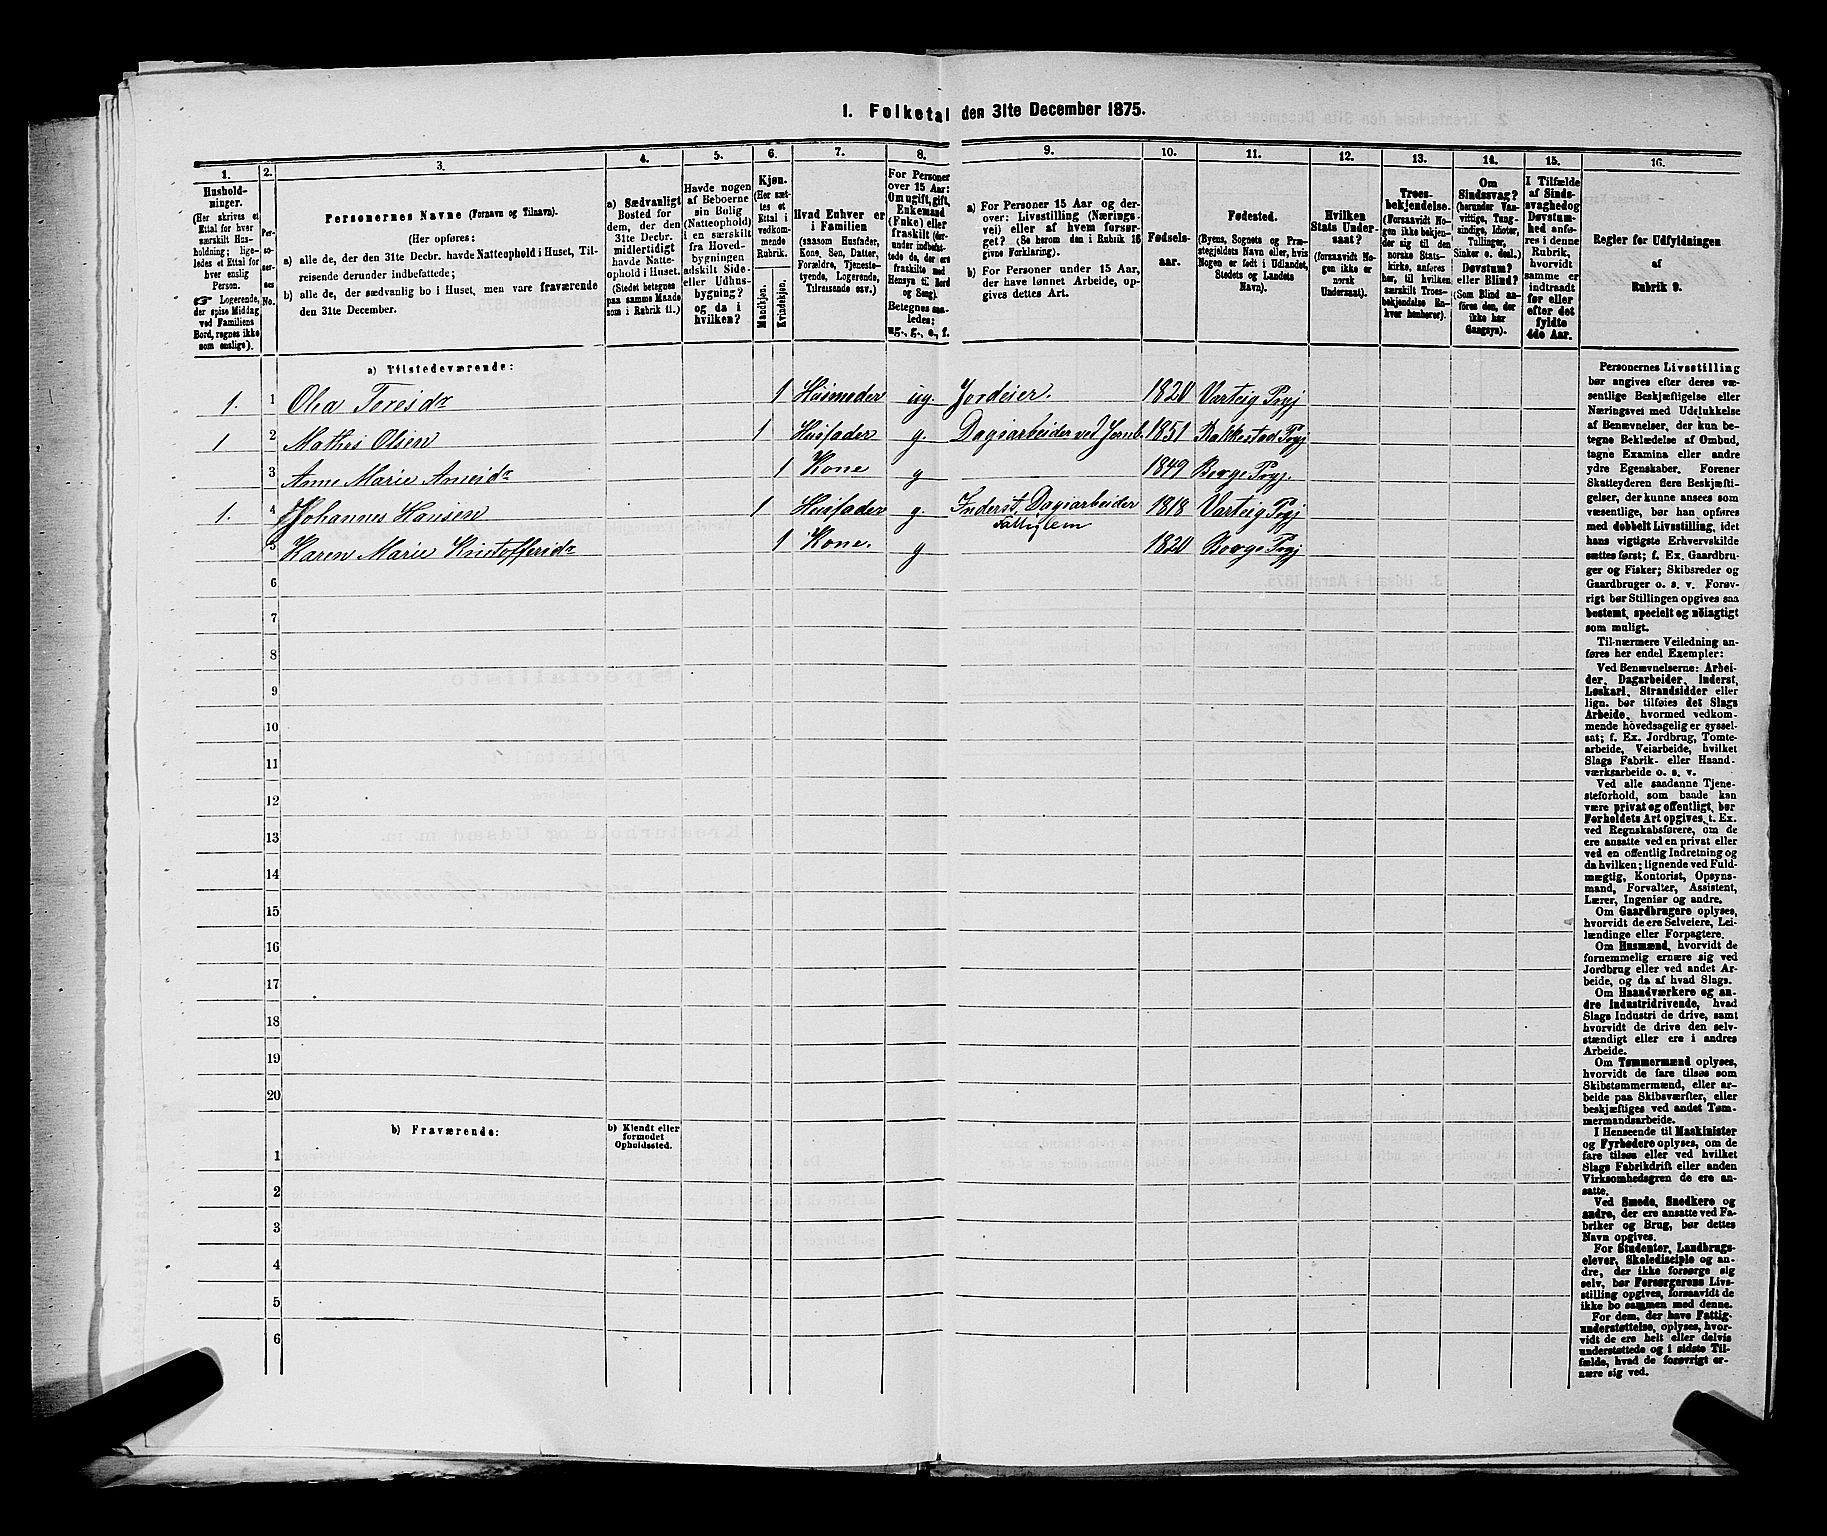 1. Folketal den 31te December 1875.
1.
2.
3.
4.
5.
6.
7.
8.
9.
10.
11.
12.
13.
14.
15.
16.
Hushold-
ninger.
(Her skrives et
Ettal for hver
særskilt Hus-
holdning; lige-
ledes et Ettal for
hver enslig
Person.
☞ Logerende,
der spise Middag
ved Familiens
Bord, regnes ikke
som enslige).
Per-
so-
ner-
nes
No.
Personernes Navne (Fornavn og Tilnavn).
(Her opføres:
a) alle de, der den 31te Decbr. havde Natteophold i Huset, Til-
reisende derunder indbefattede;
b) alle de, der sædvanlig bo i Huset, men vare fraværende
den 31te December.
a) Sædvanligt
Bosted for
dem, der den
31te Decbr.
midlertidigt
havde Natte-
ophold i Huset.
(Stedet betegnes
paa samme Maade
som i Rubrik 11.)
Havde nogen
af Beboerne
sin Bolig
(Natteophold)
i en særskilt
fra Hoved-
bygningen
adskilt Side-
eller Udhus-
bygning?
og da i
hvilken?
Kjøn.
(Her sæt-
tes et
Ettal i
vedkom-
mende
Rubrik.
Mandkjøn.
Kvindekjøn.
Hvad Enhver er
i Familien
(saasom Husfader,
Kone, Søn, Datter,
Forældre, Tjeneste-
tyende, Logerende,
Tilreisende osv.)
For Personer
over 15 Aar:
Om ugift, gift,
Enkemand
(Enke) eller
fraskilt (der-
under indbefat-
tede de, der ere
fraskilte med
Hensyn til Bord
og Seng).
Betegnes saa-
ledes:
ug., g., e., f.
a) For Personer 15 Aar og der-
over: Livsstilling (Nærings-
vei) eller af hvem forsør-
get? (Se herom den i Rubrik 16
givne Forklaring).
b) For Personer under 15 Aar,
der have lønnet Arbeide, op-
gives dettes Art.
Fødsels-
aar.
Fødested.
(Byens, Sognets og Præ-
stegjeldets Navn eller, hvis
Nogen er født i Udlandet,
Stedets og Landets
Navn).
Hvilken
Stats Under-
saat?
(forsaavidt No-
gen ikke er
norsk
Undersaat).
Troes-
bekjendelse.
(Forsaavidt No-
gen ikke bekjen-
der sig til den
norske Stats-
kirke, anføres
her, til hvilken
særskilt Troes-
bekjendelse En-
hver henhører).
Om
Sindssvag?
(herunder Van-
vittige, Tung-
sindige, Idioter,
Tullinger,
Sinker o. desl.)
Døvstum?
eller Blind?
(Som Blind an-
føres den, der
ikke har
Gangsyn).
I Tilfælde
af Sinds-
svaghed og
Døvstum-
hed anfø-
res i denne
Rubrik,
hvorvidt
samme er
indtraadt
før eller
efter det
fyldte
4de Aar.
Regler for Udfyldningen
af
Rubrik 9.
a) Tilstedeværende:
1. 1 Olea Toresdr 1 Husmoder ug. Jordeier. 1820 Varteig Prgj
1 2 Mathis Olsen 1 Husfader g. Dagsarbeider ved Jernb. 1851 Rakkestad Prgj
3 Anne Marie Arnesdr 1 Kone g 1849 Borge Prgj.
1. 4 Johannes Hansen 1 Husfader g. Inderst, Dagsarbeider 1818 Varteig Prgj
Fattiglem
5 Karen Marie Kristoffersdr 1 Kone. g 1820 Borge Prgj
6
7
8
9
10
11
12
13
14
15
16
17
18
19
20
b) Fraværende:
b) Kjendt eller
formodet
Opholdssted.
1
2
3
4
5
6
Personernes Livsstilling
bør angives efter deres væ-
sentlige Beskjæftigelse eller
Næringsvei med Udelukkelse
af Benævnelser, der kun be-
tegne Beklædelse af Ombud,
tagne Examina eller andre
ydre Egenskaber. Forener
Skatteyderen flere Beskjæfti-
gelser, der kunne ansees som
væsentlige, bør han opføres
med dobbelt Livsstilling, idet
hans vigtigste Erhvervskilde
sættes først; f. Ex. Gaardbru-
ger og Fisker; Skibsreder og
Gaardbruger o. s. v. Forøv-
rigt bør Stillingen opgives saa
bestemt, specielt og nöiagtigt
som muligt.
Til nærmere Veiledning an-
føres her endel Exempler:
Ved Benævnelserne: Arbei-
der, Dagarbeider, Inderst,
Løskarl, Strandsidder eller
lign. bør tilføies det Slags
Arbeide, hvormed vedkom-
mende hovedsagelig er syssel-
sat; f. Ex. Jordbrug, Tomte-
arbeide, Veiarbeide, hvilket
Slags Fabrik- eller Haand-
værksarbeide o. s. v.
Ved alle saadanne Tjene-
steforhold, som baade kan
være privat og offentligt, bør
Forholdets Art opgives, t. Ex.
ved Regnskabsførere, om de
ere ansatte ved en privat eller
ved en offentlig Indretning og
da hvilken; lignende ved Fuld-
mægtig, Kontorist, Opsyns-
mand, Forvalter, Assistent,
Lærer, Ingeniør og andre.
Om Gaardbrugere oplyses,
hvorvidt de ere Selveiere, Lei-
lændinge eller Forpagtere.
Om Husmænd, hvorvidt de
fornemmelig ernære sig ved
Jordbrug eller ved andet Ar-
beide, og da af hvad Slags.
Om Haandværkere og an-
dre Industridrivende, hvad
Slags Industri de drive, samt
hvorvidt de drive den selv-
stændigt eller ere i andres
Arbeide.
Om Tømmermænd oplyses,
hvorvidt de fare tilsøs som
Skibstømmermænd, eller ar-
beide paa Skibsværfter, eller
beskjæftiges ved andet Tøm-
mermandsarbeide.
I Henseende til Maskinister
og Fyrbødere oplyses, om de
fare tilsøs eller ved hvilket
Slags Fabrikdrift eller anden
Virksomhedsgren de ere an-
satte.
Ved Smede, Snedkere og
andre, der ere ansatte ved Fa-
briker og Brug, bør dettes
Navn opgives.
For Studenter, Landbrugs-
elever, Skoledisciple og an-
dre, der ikke forsørge sig
selv, bør Forsørgerens Livs-
stilling opgives, forsaavidt de
ikke bo sammen med denne.
For dem, der have Fattig-
understøttelse, oplyses, hvor-
vidt de ere helt eller delvis
understøttede og i sidste Til-
fælde, hvad de forøvrigt er-
nære sig ved.